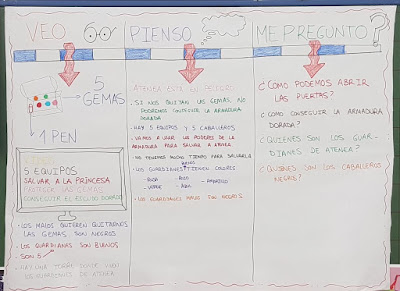 VEO
5
GEMAS
1 PEN
5 EQUIPOS
SALVAR A LA PRINCESA
PROTEGER LAS GEMAS
CONSEGUIR EL ESCUDO DORADO
- LOS MALOS QUIEREN QUITARNOS
LAS GEMAS. SON NEGROS
- LOS GUARDIANES SON BUENOS
- SON 5
- HAY UNA TORRE DONDE VIVEN
LOS GUARDIANES DE ATENEA
PIENSO
ATENEA ESTÁ EN PELIGRO
- SI NOS QUITAN LAS GEMAS, NO
PODREMOS CONSEGUIR LA ARMADURA
DORADA
- HAY 5 EQUIPOS Y 5 CABALLEROS
- VAMOS A USAR LOS PODERES DE LA
ARMADURA PARA SALVAR A ATENEA
- NO TENEMOS MUCHO TIEMPO PARA SALVARLA
- LOS GUARDIANES TIENEN COLORES
- ROSA
- ROJO
- AMARILLO
- VERDE
- AZUL
- LOS GUARDIANES MALOS SON NEGROS
ME PREGUNTO?
¿COMO PODEMOS ABRIR
LAS PUERTAS?
¿COMO CONSEGUIR LA ARMADURA
DORADA?
¿QUIENES SON LOS GUAR-
DIANES DE ATENEA?
¿QUIENES SON LOS CABALLEROS
NEGROS?